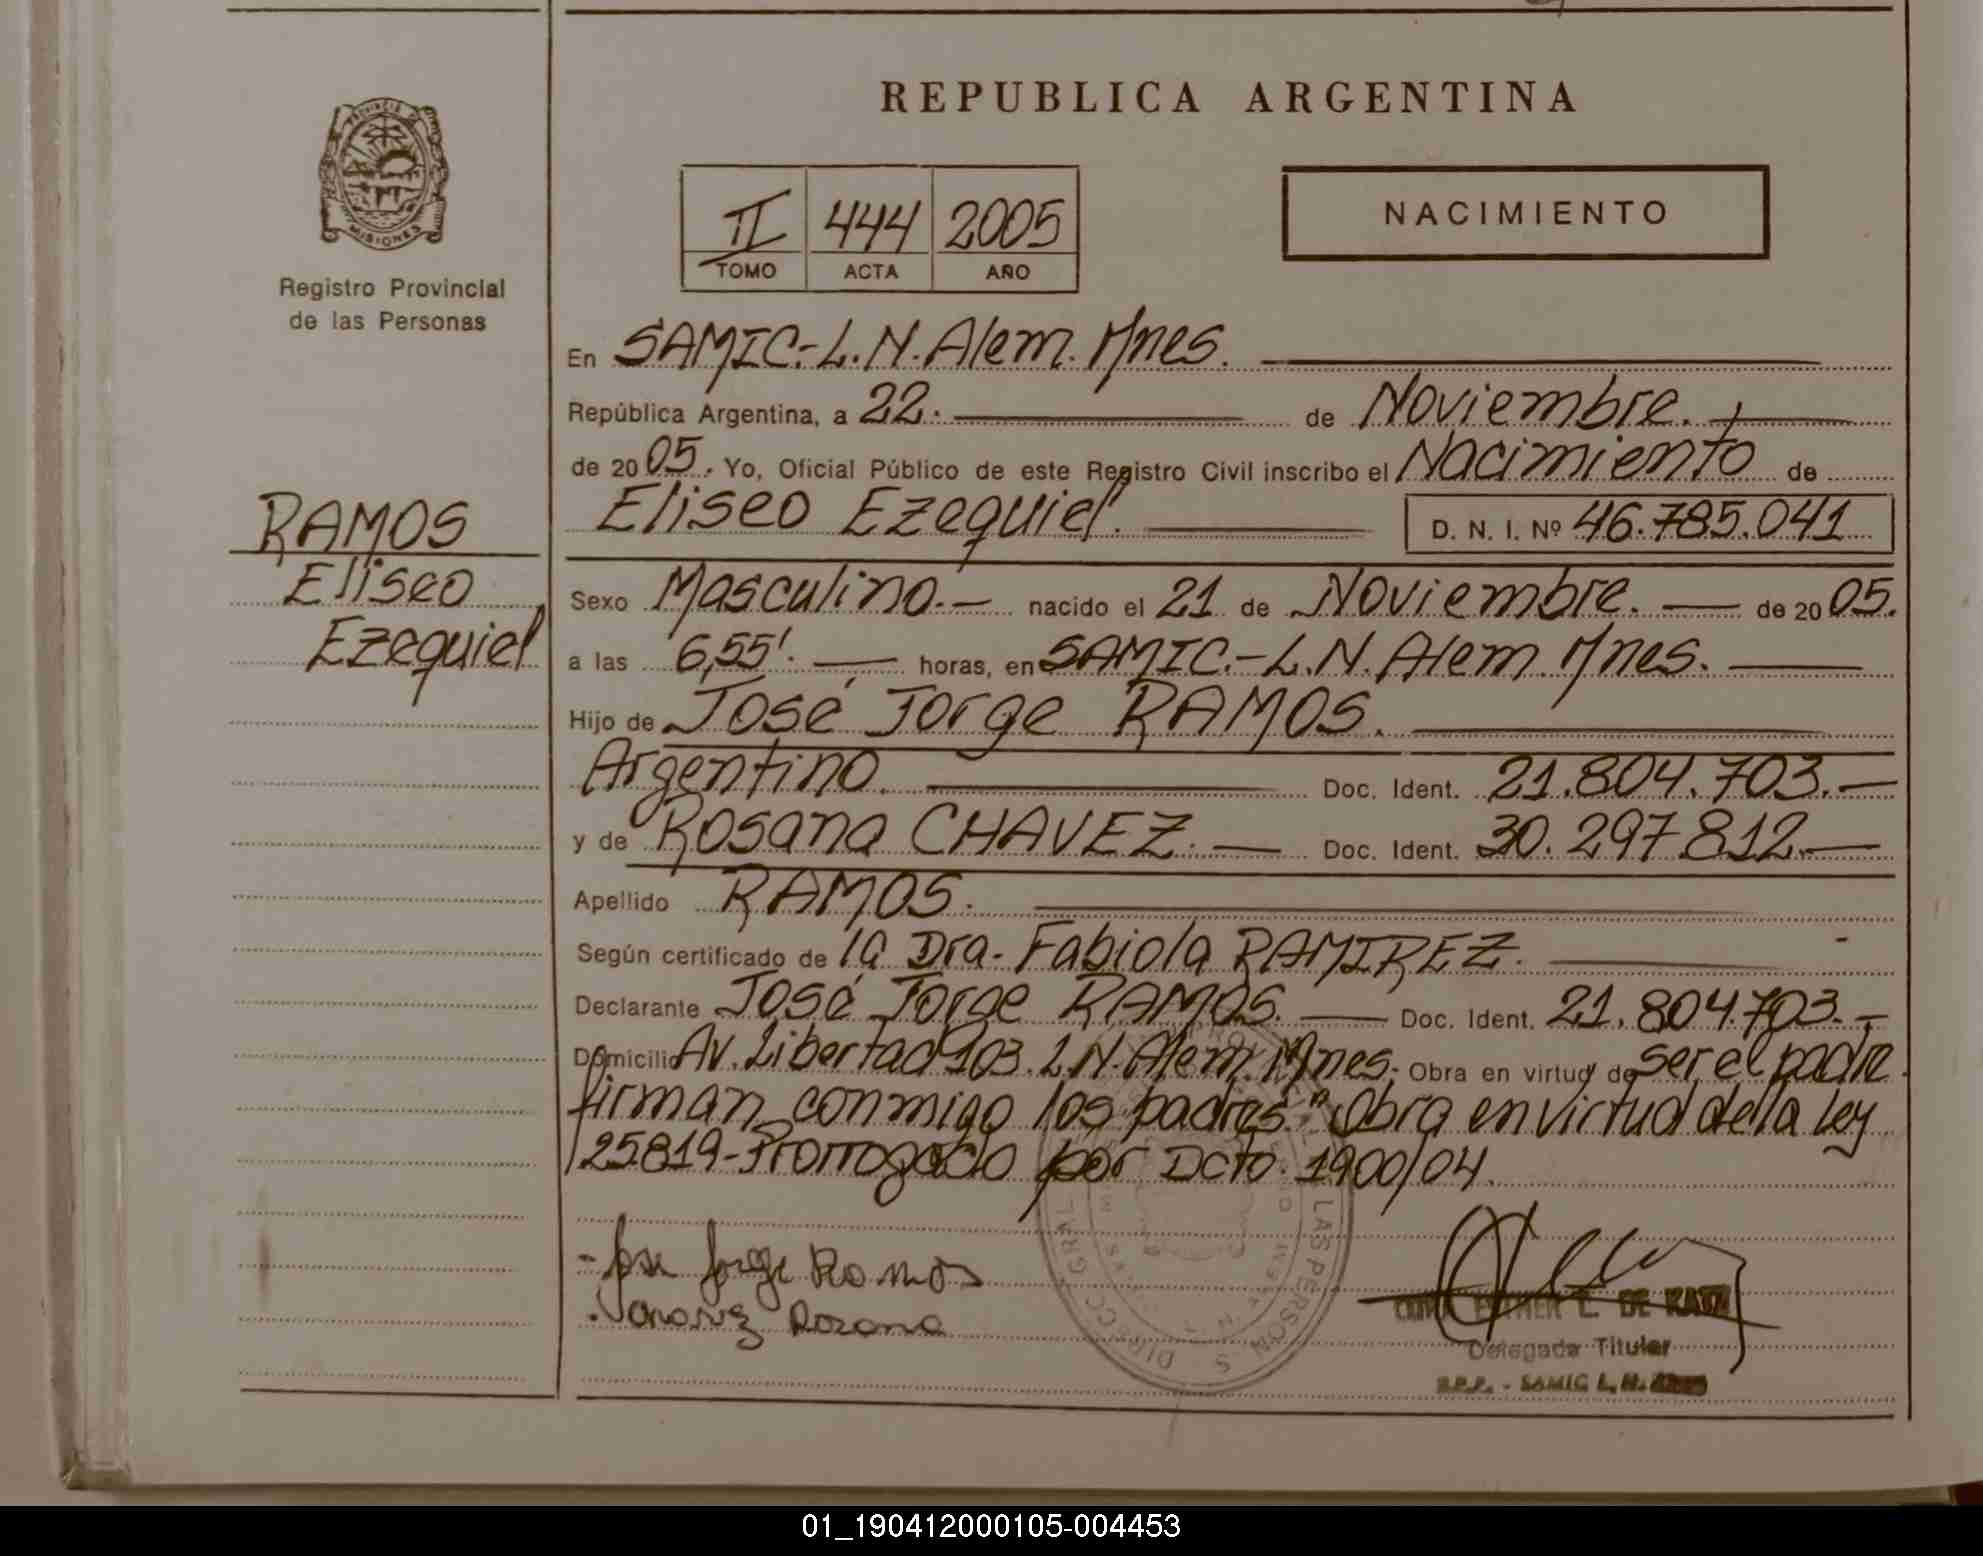 REPUBLICA ARGENTINA
PROVINCIA DE
MISIONES
Registro Provincial
de las Personas
II 444 2005
TOMO ACTA AÑO
NACIMIENTO
En SAMIC.-L.N.Alem. Mnes.
República Argentina, a 22. de Noviembre.
de 2005. Yo, Oficial Público de este Registro Civil inscribo el Nacimiento de
Eliseo Ezequiel. D. N. I. Nº 46.785.041
RAMOS
Eliseo
Ezequiel
Sexo Masculino.- nacido el 21 de Noviembre. de 2005.
a las 6,55'. horas, en SAMIC.-L.N.Alem.Mnes.
Hijo de José Jorge RAMOS.
Argentino. Doc. Ident. 21.804.703.-
y de Rosana CHAVEZ. Doc. Ident. 30.297.812.-
Apellido RAMOS.
Según certificado de la Dra. Fabiola RAMIREZ.
Declarante José Jorge RAMOS. Doc. Ident. 21.804.703.-
Domicilio Av.Libertad 103.L.N.Alem.Mnes. Obra en virtud de ser el padre.
firman conmigo los padres "Obra en virtud de la Ley
25819-Prorrogado por Dcto. 1900/04.
-Jose Jorge Ramos
Rozana
DE KATZ
Delegada Titular
R.P.P. - SAMIC L.N.
DIRECC GRAL LAS PERSONAS
01_190412000105-004453